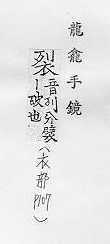 龍龕手鏡
裂音列分襞
丨破也
(衣部
P107)